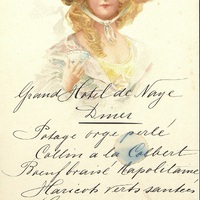 Grand Hotel de Naye
Diner
Potage orge perlé
Collin a la Colbert
Boeuf braisé Napolitaine
Haricots verts sautés